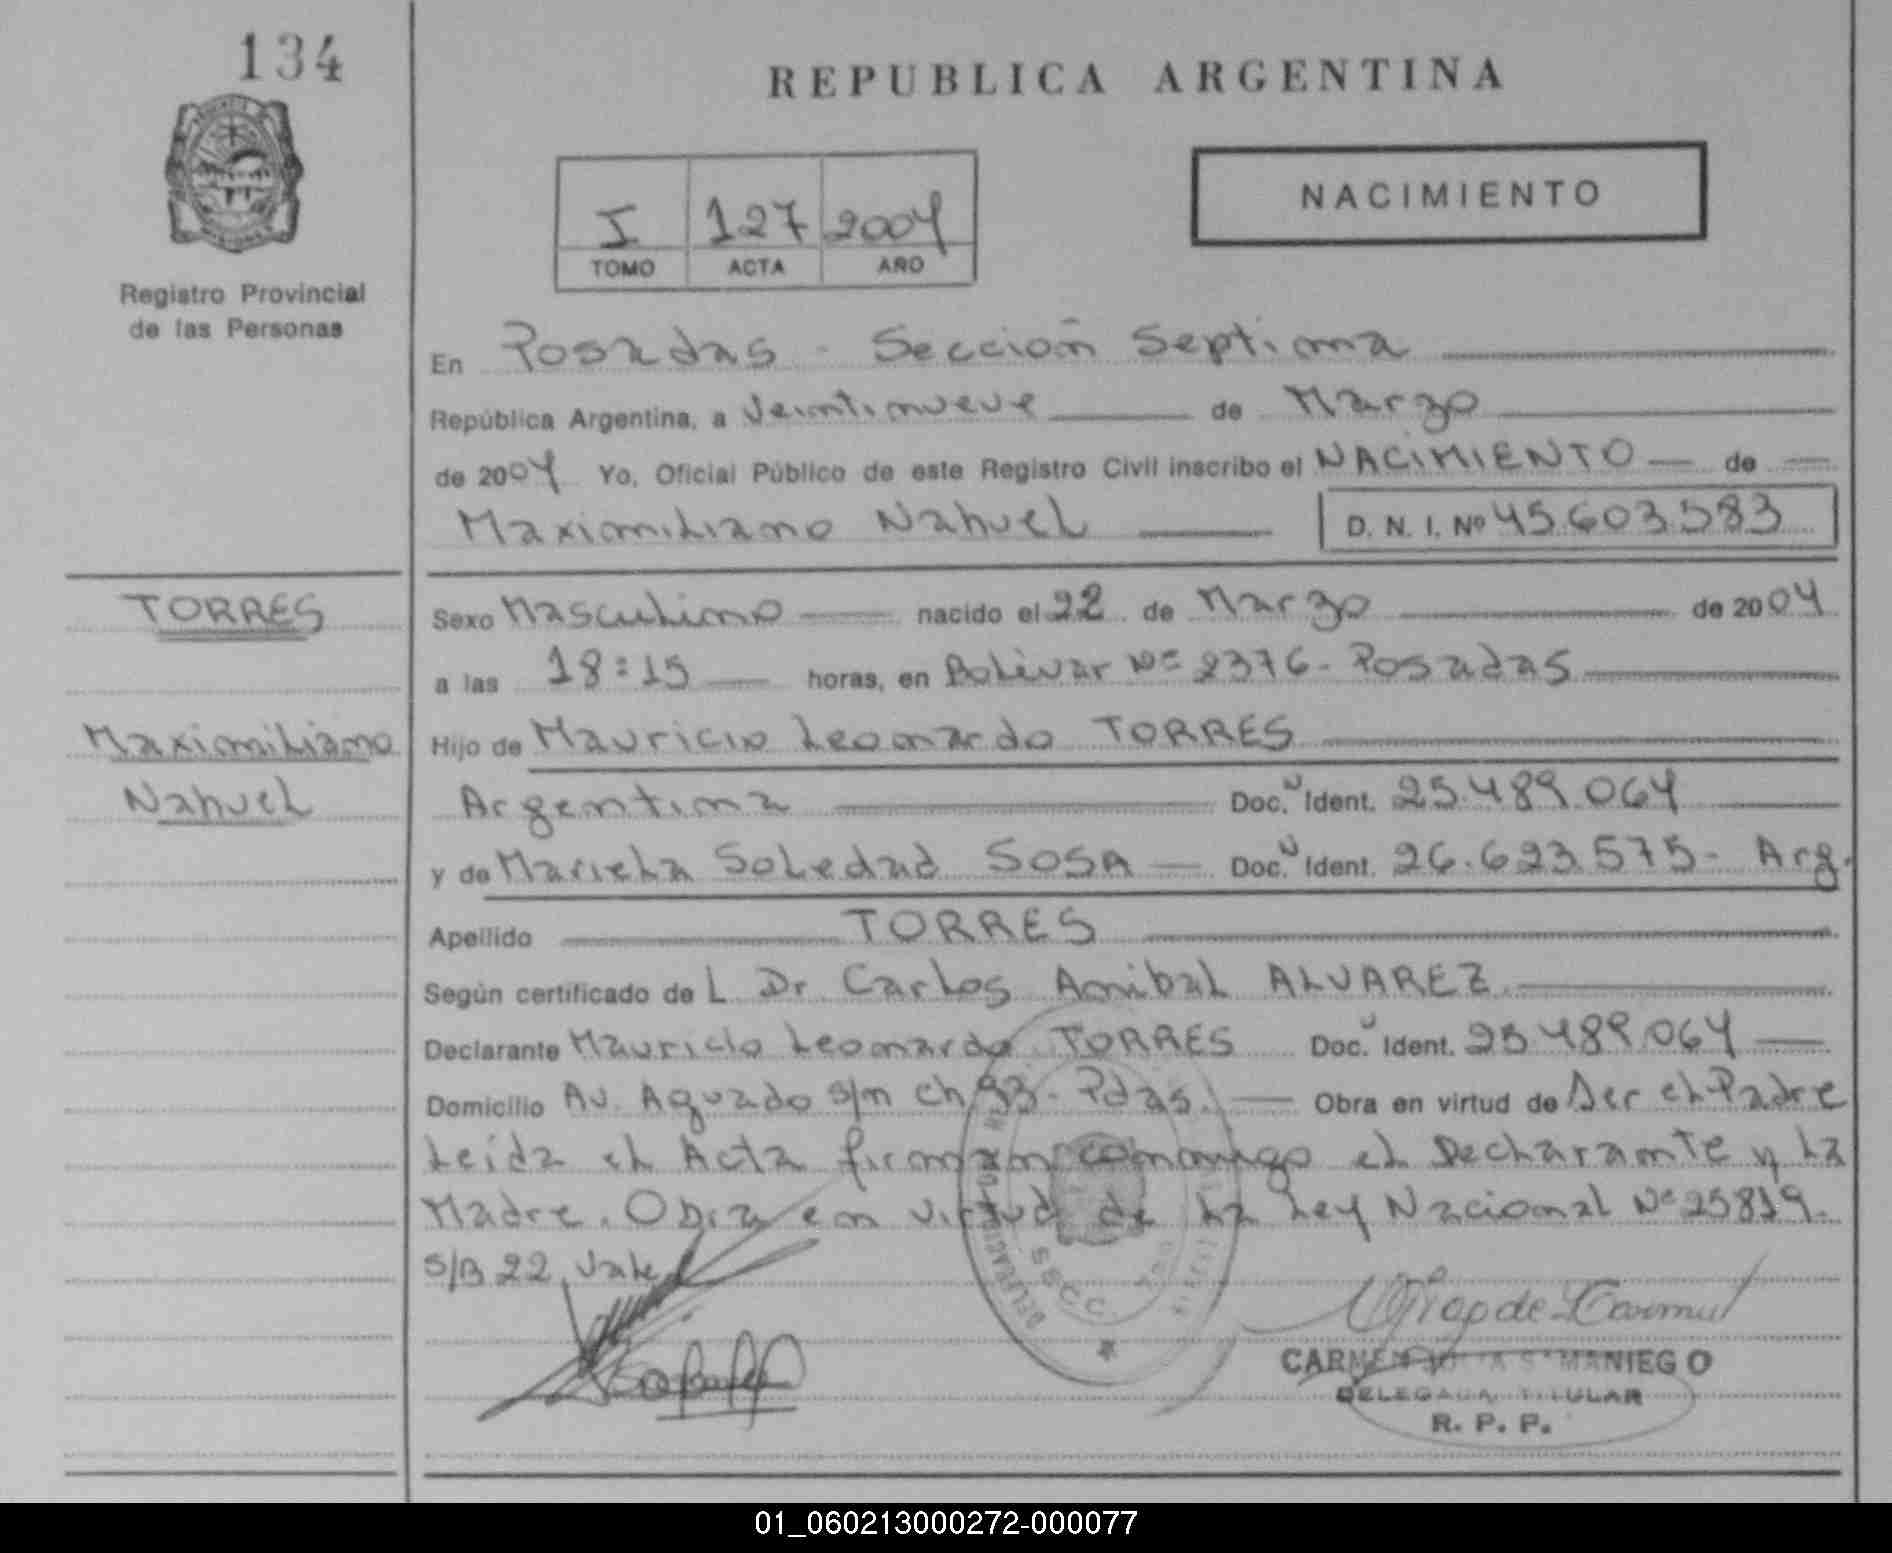 134
REPUBLICA ARGENTINA
I 127 2004
TOMO ACTA AÑO
NACIMIENTO
Registro Provincial
de las Personas
En Posadas - Sección Septima
República Argentina, a Veintinueve de Marzo
de 2004 Yo, Oficial Público de este Registro Civil inscribo el NACIMIENTO de
Maximiliano Nahuel D. N. I. Nº 45.603.583
TORRES
Maximiliano
Nahuel
Sexo Masculino nacido el 22 de Marzo de 2004
a las 18:15 horas, en Bolívar Nº 2376 - Posadas
Hijo de Mauricio Leonardo TORRES
Argentina Doc. Ident. 25.489.064
y de Mariela Soledad SOSA Doc. Ident. 26.623.575 - Arg.
Apellido TORRES
Según certificado de L Dr. Carlos Anibal ALVAREZ
Declarante Mauricio Leonardo TORRES Doc. Ident. 25.489.064
Domicilio Av. Aguado s/n Ch 93 - Pdas. Obra en virtud de Ser el Padre
Leída el Acta firman conmigo el Declarante y la
Madre. Obra en virtud de la Ley Nacional Nº 25819.
S/B 22 Vale
SSCC
CARMEN MANIEGO
DELEGADA TITULAR
R. P. P.
01_060213000272-000077